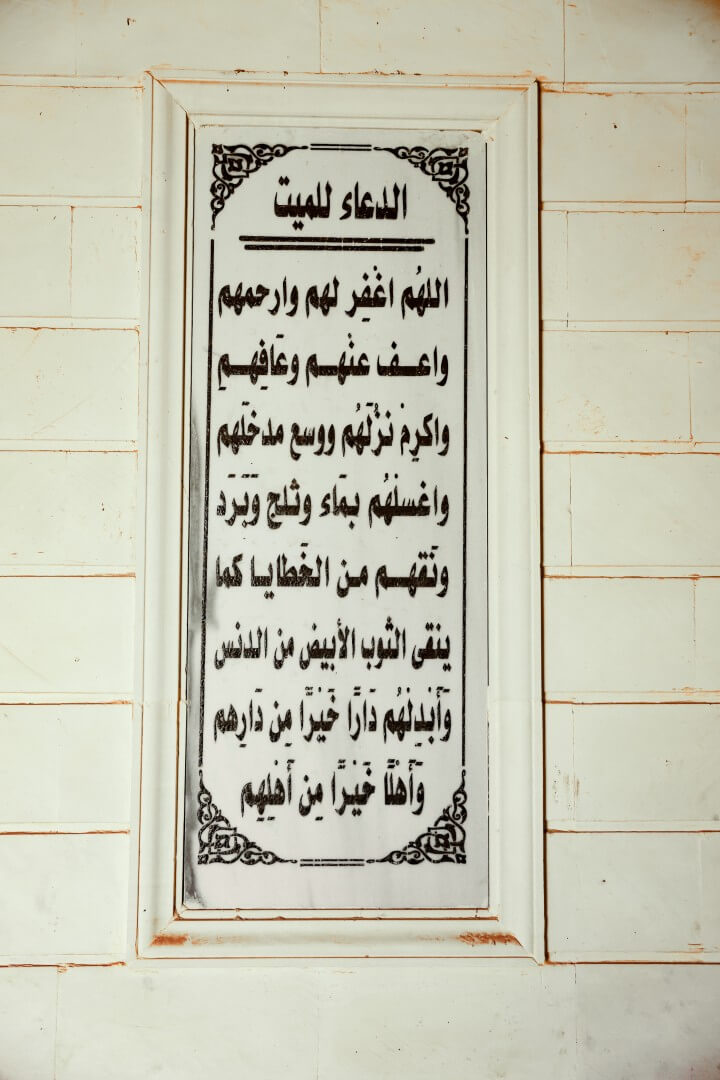 الدعاء للميت
اللهُم اغْفِر لهم وارحمهم
واعـف عنْهـم وعَافِهـمِ
واكرِمْ نزُلَهُم ووسع مدخلَهم
واغسلْهُم بمَاء وثلج وَبَرَد
ونَقهـم مـن الخَطايـا كما
ينقى الثوب الأبيض من الدنس
وَأَبْدِلْهُم دَارًا خَيْرًا مِن دَارِهم
وَأَهْلًا خَيْرًا مِن أَهْلِهِم